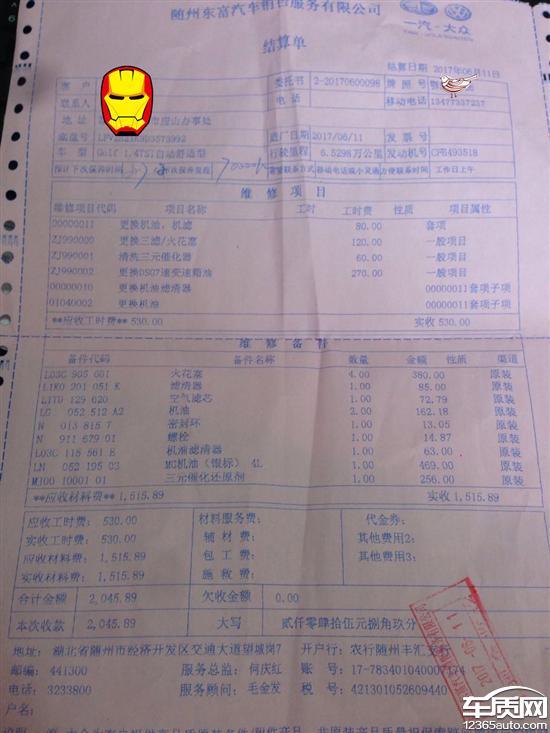 随州东富汽车销售服务有限公司
一汽-大众
结算单
结算日期 2017年06月11日
客户 委托书 2-20170600098 牌照号 鄂
联系人 电话 移动电话 13477337237
地址 市应山办事处
底盘号 进厂日期 2017/06/11 发票号
车型 Golf 1.4TSI自动舒适型 行驶里程 6.5298万公里 发动机号 CFB493518
预计下次保养时间 次保养里程 70000 方便联系时间 工作日上午
维修项目
维修项目代码 项目名称 工时 工时费 性质 项目属性
00000011 更换机油，机滤 80.00 套项
ZJ990000 更换三滤/火花塞 120.00 一般项目
ZJ990001 清洗三元催化器 60.00 一般项目
ZJ990002 更换DSG7速变速箱油 270.00 一般项目
00000010 更换机油滤清器 00000011套项子项
01040002 更换机油 00000011套项子项
**应收工时费** 530.00 实收 530.00
维修备件
备件代码 备件名称 数量 金额 性质 渠道
L03C 905 601 火花塞 4.00 380.00 原装
L1K0 201 051 K 滤清器 1.00 85.00 原装
L1TD 129 620 空气滤芯 1.00 72.79 原装
LG 052 512 A2 机油 2.00 162.18 原装
N 013 815 7 密封环 1.00 13.05 原装
N 911 679 01 螺栓 1.00 14.87 原装
L03C 115 561 E 机油滤清器 1.00 63.00 原装
LN 052 195 03 MG机油（银标） 4L 1.00 469.00 原装
MJ00 10001 01 三元催化还原剂 1.00 256.00 原装
**应收材料费** 1,515.89 实收 1,515.89
应收工时费： 530.00 材料服务费： 代金券：
实收工时费： 530.00 辅材费： 其他费用2：
应收材料费： 1,515.89 包工费： 其他费用3：
实收材料费： 1,515.89 施救费：
合计金额 2,045.89 欠收金额 0.00
本次收款 2,045.89 大写 贰仟零肆拾伍元捌角玖分
地址： 湖北省随州市经济开发区交通大道望城岗7 开户行：农行随州丰汇支行
邮编： 441300 服务总监：何庆红 账号： 17-783401040007174
电话： 3233800 服务顾问：毛金发 税号： 421301052609440
户名：
车质网
12365auto.com